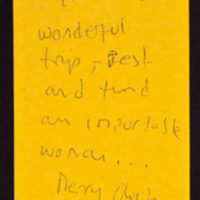 wonderful
trip, rest
and find
an importable
woman...
Merry